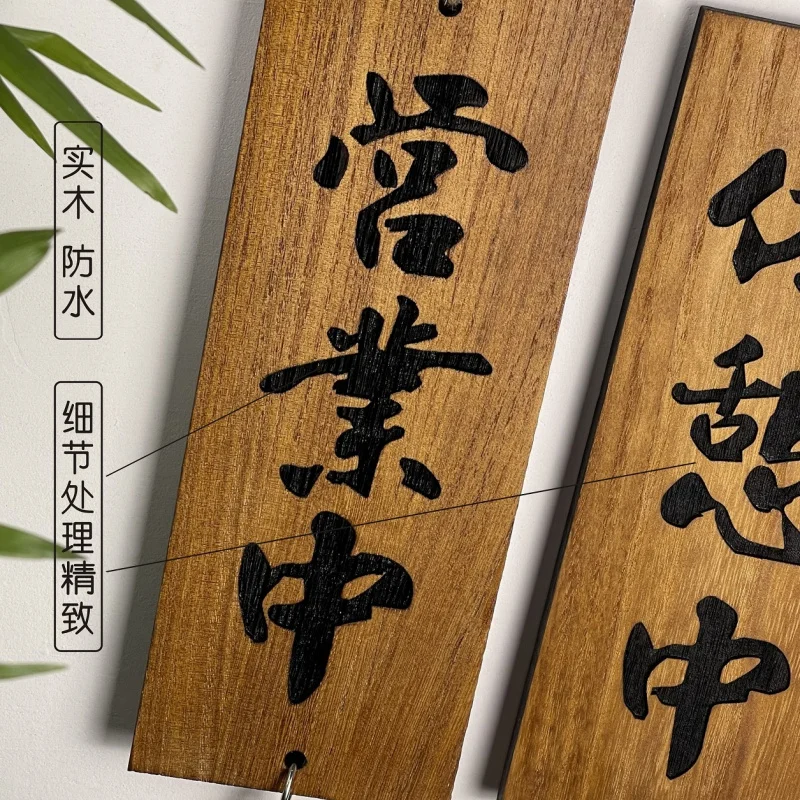 实木 防水
细节处理精致
営業中
休憩中